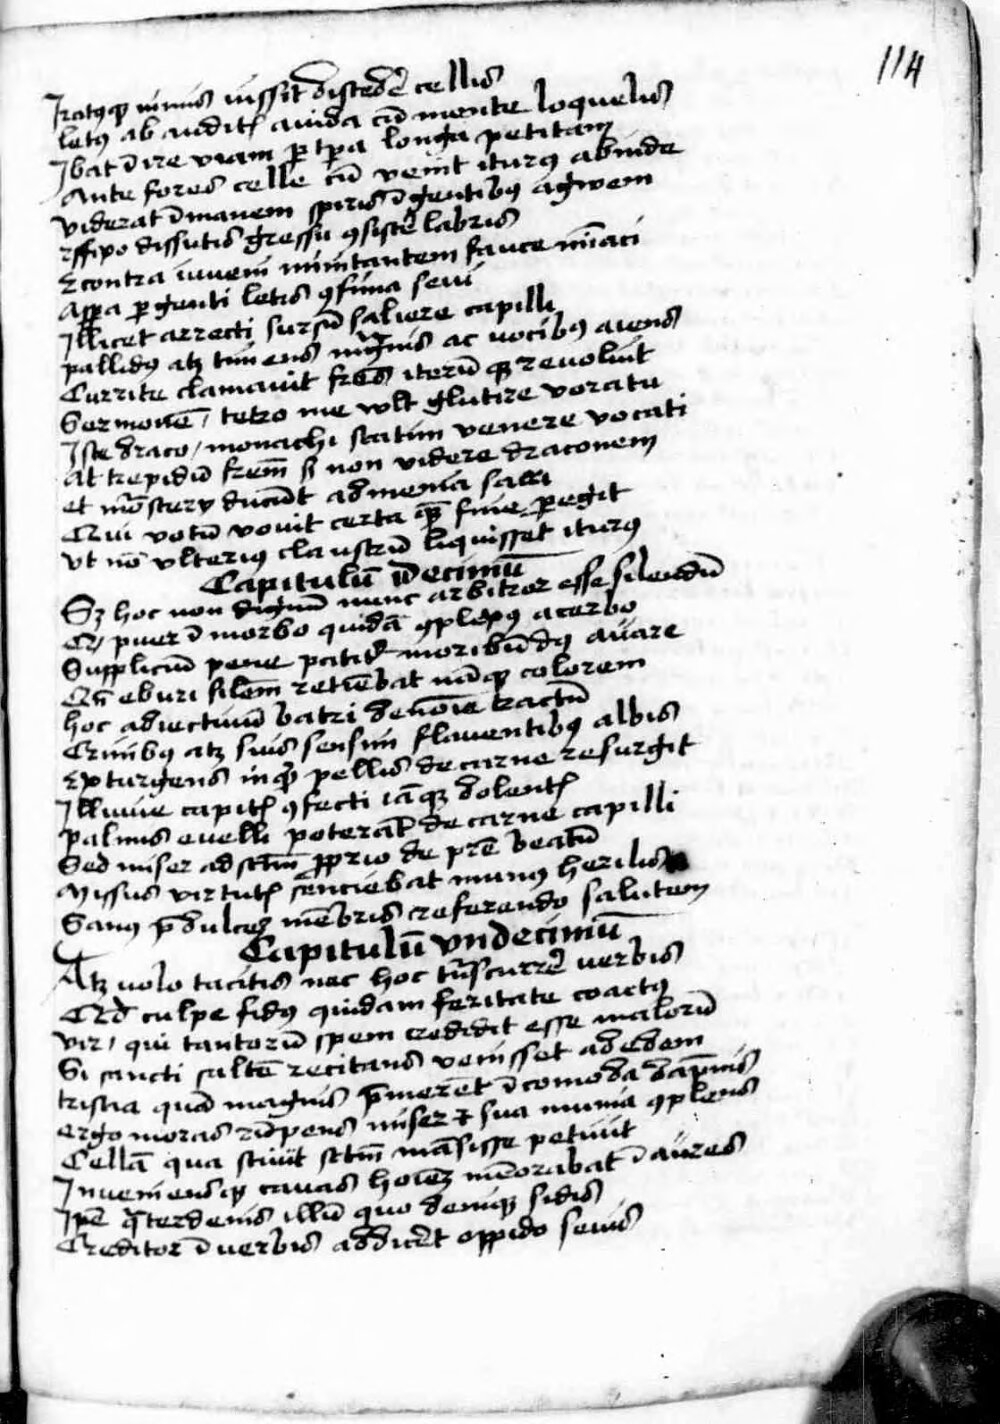 114
Iratusq nimis iussit discedere cellis
letus ab auditis auida cum mente loquelis
Ibat inire viam per tempora longa petitam
Ante fores celle cum venit iturus abinde
viderat inmanem spiris ingentibus agmen
dissutis gressu consistere labris
Econtra iuvenem minitantem fauce minaci
Aspera pergenti letis confinia seui
Illicet arrecti sursum saliere capilli
pallidus atque timens magnis ac vocibus aiens
Currite clamauit fratres iterumque reuoluit
Sermonem / tetro me wlt glutire voratu
Iste draco / monachi statim venere vocati
At trepidum fratrem si non videre draconem
et monasterii ducunt ad menia
Qui votum vouit certa quam fine peregit
vt non vlterius claustrum liquisset iturus
Capitulum decimum
Sed hoc non dignum nunc arbitror esse silendum
Quod puer in morbo quidam complexus acerbo
Supplicium pene patitur moribundus auare
eburi similem retinebat namque colorem
hoc adiectiuum batri denomine tractum
Crinibus atque suis sensim flauentibus albis
Exturgens inquam pellis de carne resurgit
Illuuie capitis confecti iamque dolentis
palmis euelli poterant de carne capilli
Sed miser ad sanctum proprio de patre beatum
Missus virtutis senciebat munus herilis
Sanus predulcem membris referendo salutem
Capitulum vndecimum
Atque volo tacitis nec hoc transcurrere verbis
Quod culpe fidus quidam feritate coactus
vir / qui tantorum spem credidit esse malorum
Si sancti saltem recitans venisset ad edem
tristia quam magnis premerent incomoda dampnis
ergo moras rumpens miser et sua munia complens
Cellam qua sciuit sanctum mansisse petiuit
Inueniensque cauas homini memorabat in aures
Ipse quaterdenis illum quo denique sidis
Creditor in verbis addiceret oppido seuis